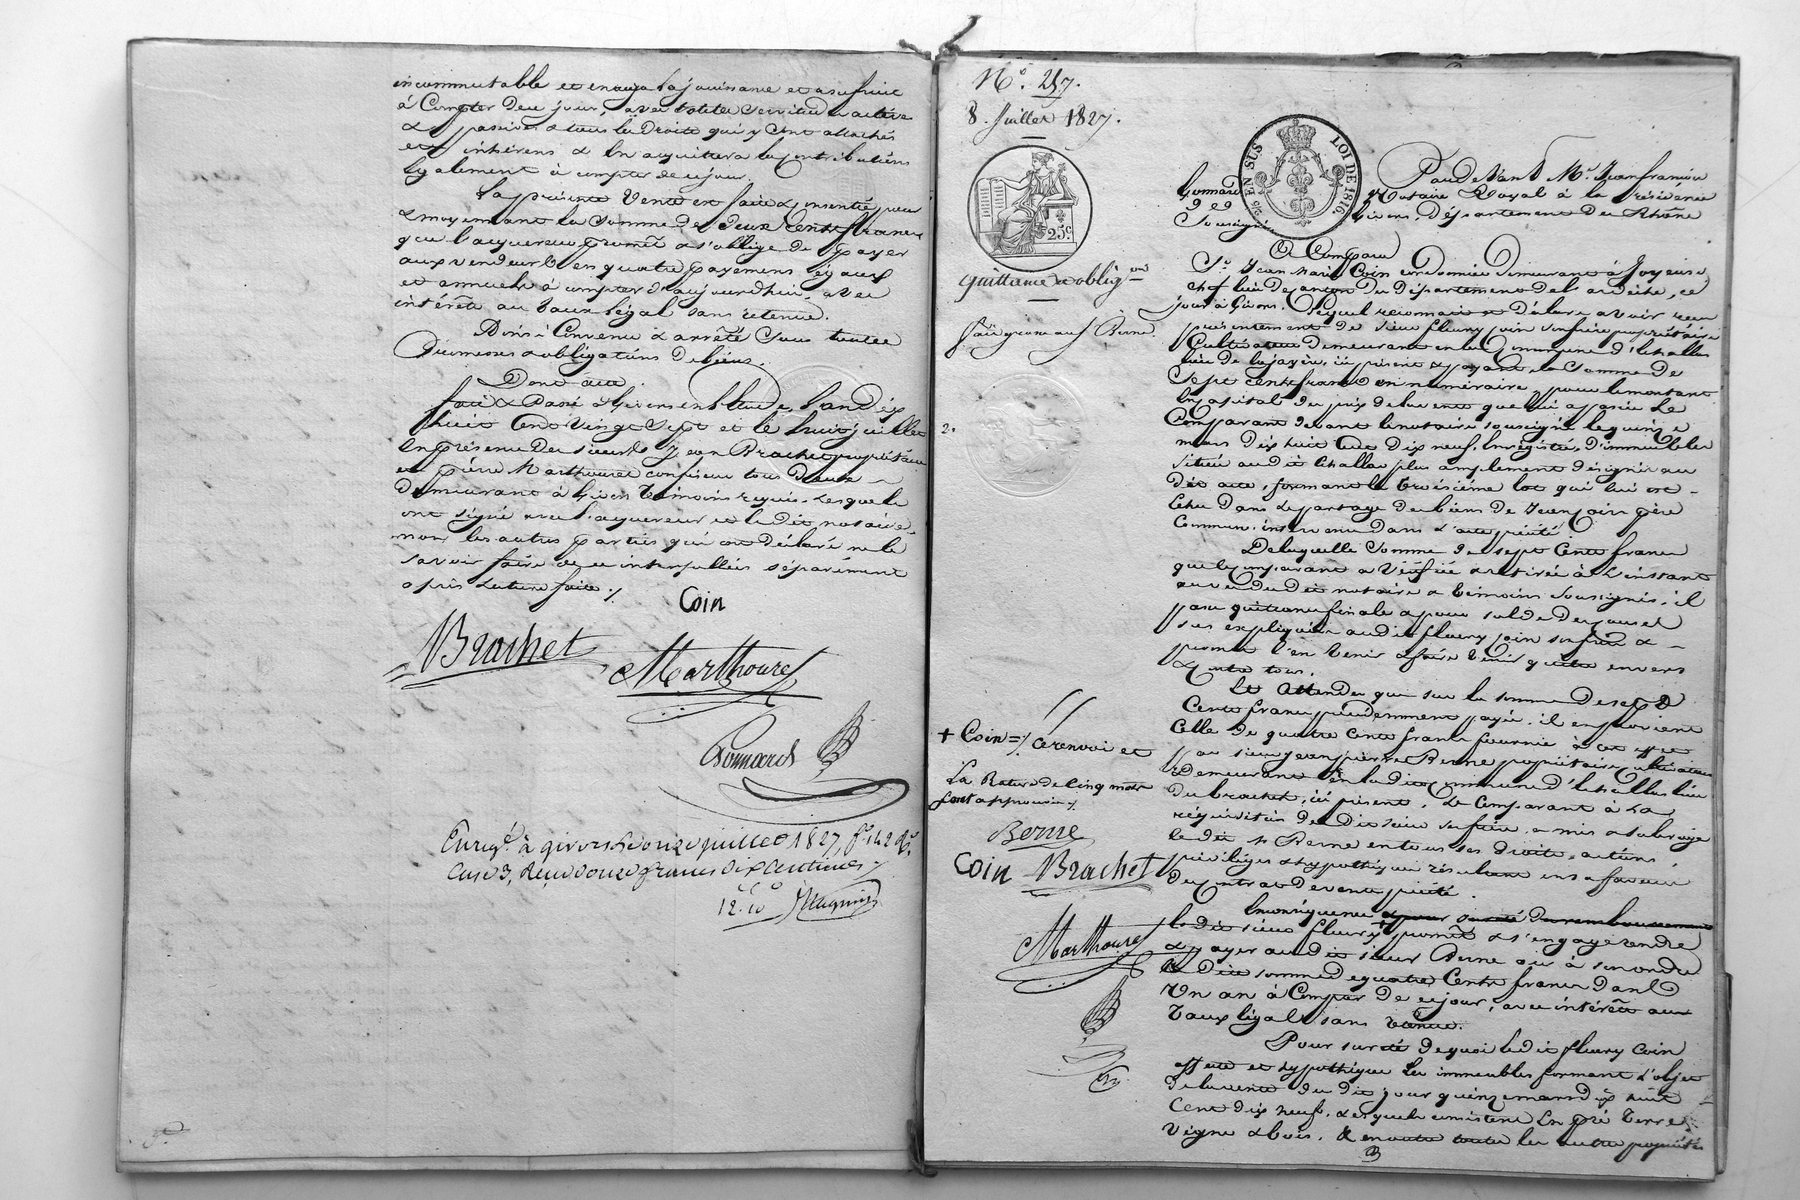 incommutable et en aura la jouissance et usufruit
à Compter de ce jour, avec toutes servitudes actives
& passives & tous les droits qui y sont attachés
et inhérens & en acquittera les contributions
également à compter de ce jour.
La présente Vente est faite & consentie pour
& moyennant la Somme de deux Cents francs
que l'acquereur promet & s'oblige de payer
aux vendeurs en quatre payemens égaux
et annuels à compter d'aujourd'hui, avec
intérêts au taux légal sans retenue.
Ainsi Convenu & arrêté sous toutes
Promesses & obligations de biens.
Dont acte.
fait & Passé à Givors en l'étude, l'an dix
huit Cent Vingt Sept et le huit juillet
En présence des sieurs Jean Brachet propriétaire
et pierre Marthouret confiseur tous deux
Demeurant à Givors témoins requis, Lesquels
ont signé avec l'acquereur et le dit notaire
non les autres parties qui ont déclaré ne le
savoir faire de ce interpellées séparément
après Lecture faite ./.
Coin
Brachet
Marthouret
Bonnard
Enregt. à givors le douze juillet 1827, f° 142 R°.
Case 3, Reçu douze francs dix centimes
12.10
N° 247.
8. Juillet 1827.
EN SUS
LOI DE 1816.
25c
quittance & oblig.on
2.
Par devant Me. Jean françois
Bonnard Notaire Royal à la résidence
de Givors, Département du Rhône
Soussigné
A Comparu
Sr. Jean Marie Coin cordonnier demeurant à Joyeuse
chef lieu de canton du département de l'ardèche, ce
jour à Givors. Lequel reconnait & déclare avoir reçu
présentement de sieur fleury Coin son frère propriétaire
Cultivateur demeurant en la Commune d'Echallas
lieu de la jayère, ici présent & payant, la Somme de
Sept Cents francs en numéraire, pour le montant
En capital du prix de la vente que lui a passée le
Comparant devant le notaire soussigné le quinze
mars dix huit Cent dix neuf, Enregistrée, d'immeubles
situés audit Echallas plus amplement désignés au
dit acte, formant le troisième lot qui lui est
Echu dans le partage des biens de Jean Coin père
Commun, intervenu dans l'acte précité.
De laquelle Somme de sept Cents francs
que le comparant a Vérifiée & retirée à l'instant
au vu du dit notaire & témoins soussignés, il
passe quittance finale & pour solde des causes
sus expliquées audit fleury Coin son frère &
promet l'en tenir & faire tenir quitte envers
& contre tous.
Et Attendu que sur la somme de sept
Cents francs précédemment payée, il en provient
Celle de quatre Cents francs fournie à cet effet
par sieur jean pierre Berne propriétaire cultivateur
demeurant en la dite commune d'Echallas lieu
du brachet, ici présent. Le Comparant à La
réquisition du dit sieur son frère, a mis & subrogé
le dit Sr. Berne en tous ses droits, actions,
privilèges & hypothèques résultant en sa faveur
du contrat de vente précité.
En conséquence & pour sureté du remboursement
le dit sieur fleury + promet & s'engage rendre
& payer audit sieur Berne ou à son ordre
La dite somme de quatre Cents francs dans
Un an à Compter de ce jour, avec intérêts au
taux légal sans retenue.
Pour sureté de quoi le dit fleury Coin
affecte et hypothèque les immeubles formant l'objet
de la vente du dit jour quinze mars dix huit
Cent dix neuf, Lesquels consistent En pré terre
Vigne & bois. & en outre toutes les autres propriétés
+ Coin =/. Ce renvoi et
La Rature de Cinq mots
sont approuvés ./.
Berne
Coin Brachet
Marthouret